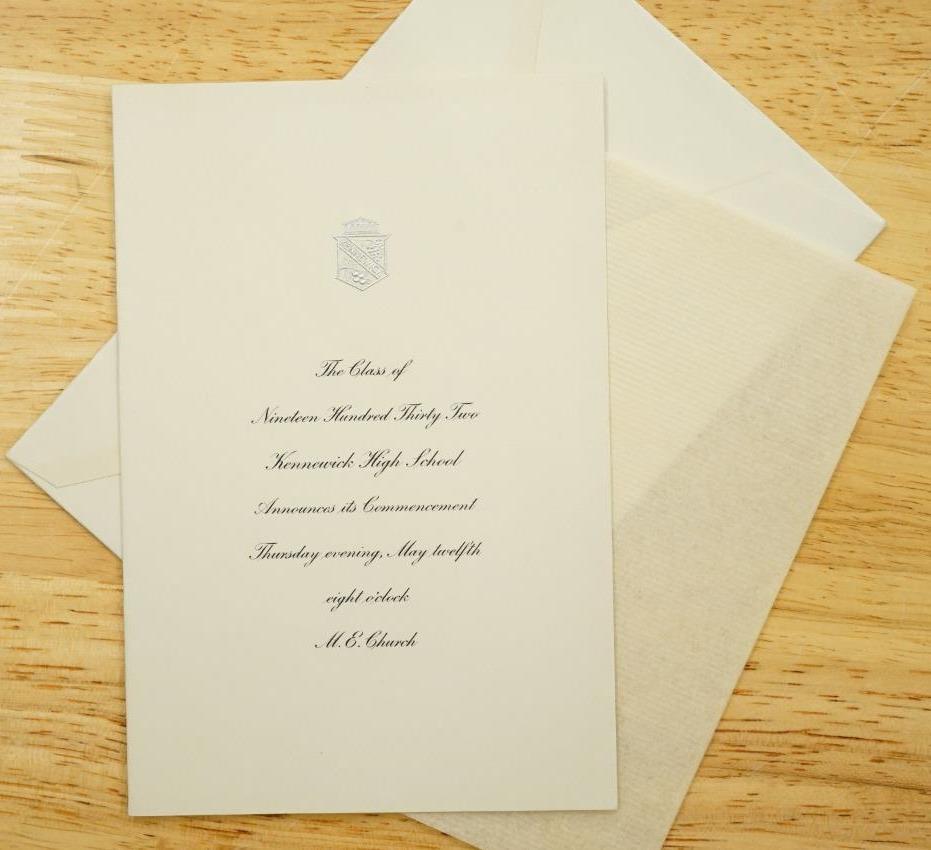 The Class of
Nineteen Hundred Thirty Two
Kennewick High School
Announces its Commencement
Thursday evening, May twelfth
eight o'clock
M. E. Church